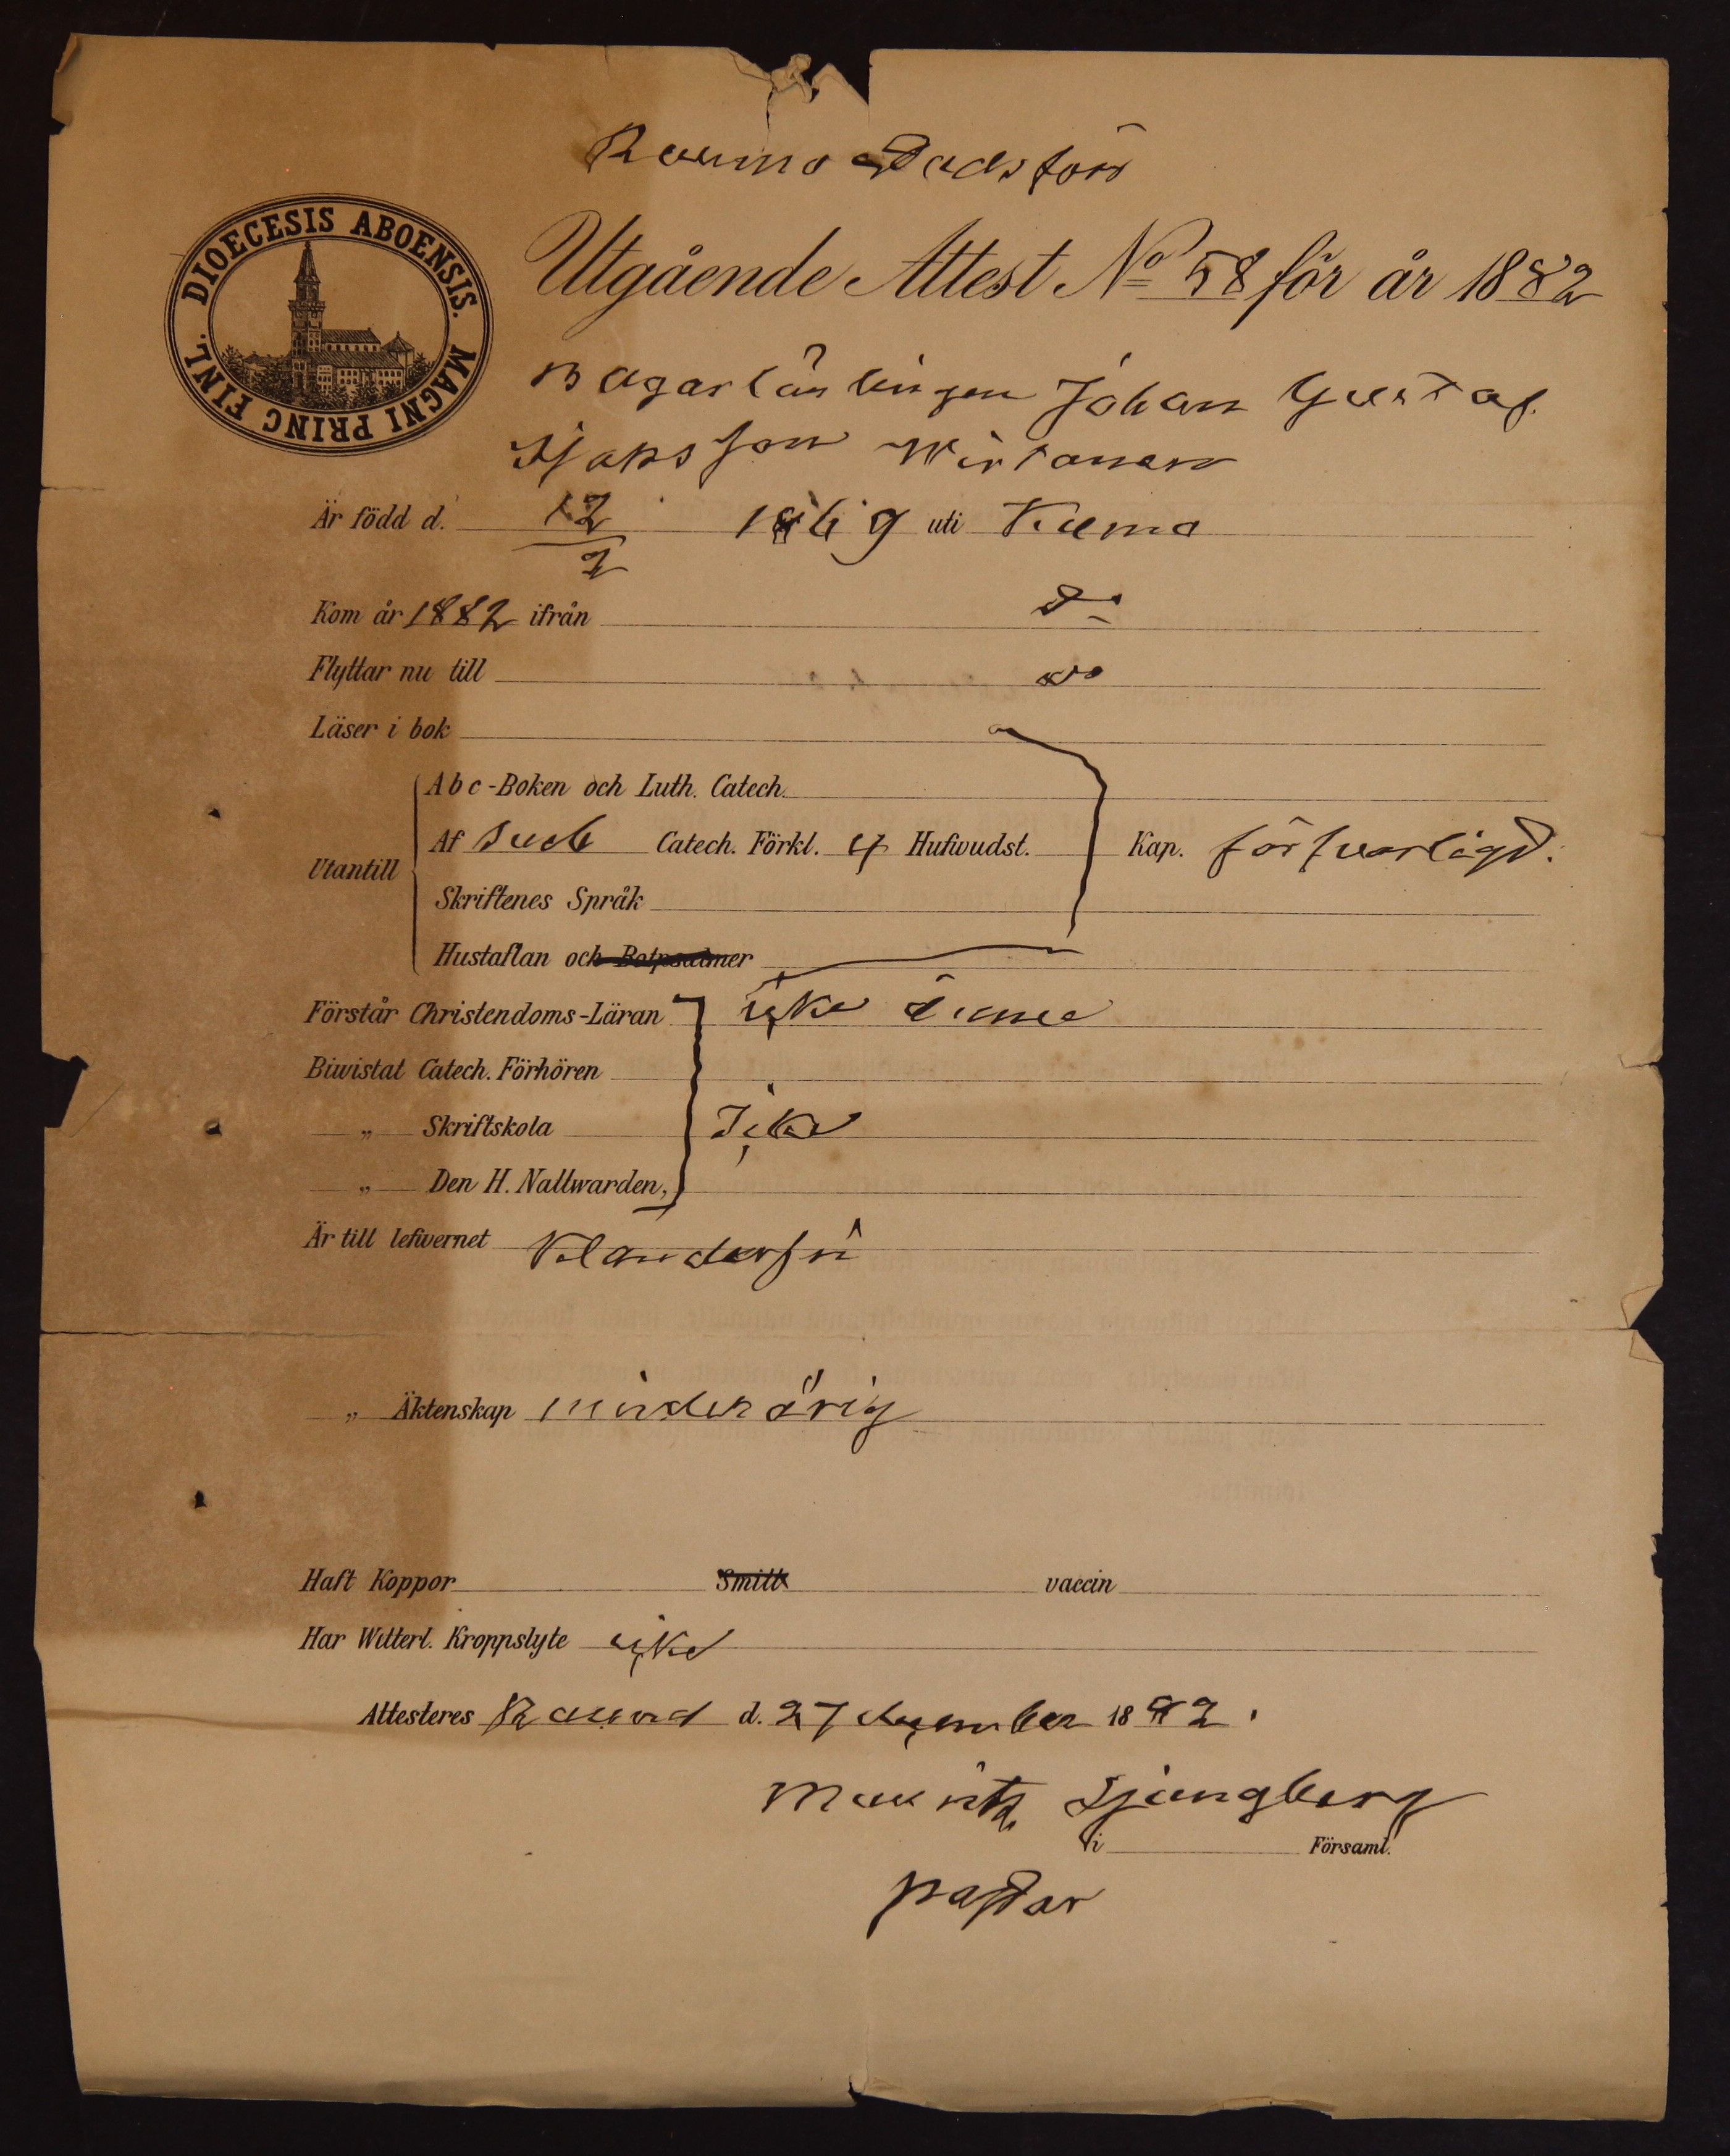 Raumo Stadsförs
DIOECESIS ABOENSIS. MAGNI PRINC FINL.
Utgående Attest No 58 för år 1882
Bagarlärlingen Johan Gustaf
Wirtanen
Är född d. 12/2 1869 uti Kumo
Kom år 1882 ifrån do
Flyttar nu till do
Läser i bok
Utantill
Abc-Boken och Luth. Catech.
Af Sveb Catech. Förkl. 4 Hufwudst. Kap. försvarligt.
Skriftenes Språk
Hustaflan och Botpsalmer
Förstår Christendoms-Läran icke ännu
Biwistat Catech. Förhören
„ Skriftskola Icke
„ Den H. Nattwarden,
Är till lefwernet Klanderfri
„ Äktenskap minderårig
Haft Koppor Smitt vaccin
Har Witterl. Kroppslyte icke
Attesteres Raumo d. 27 december 1882.
Mauritz Ljungberg
i Församl.
pastor